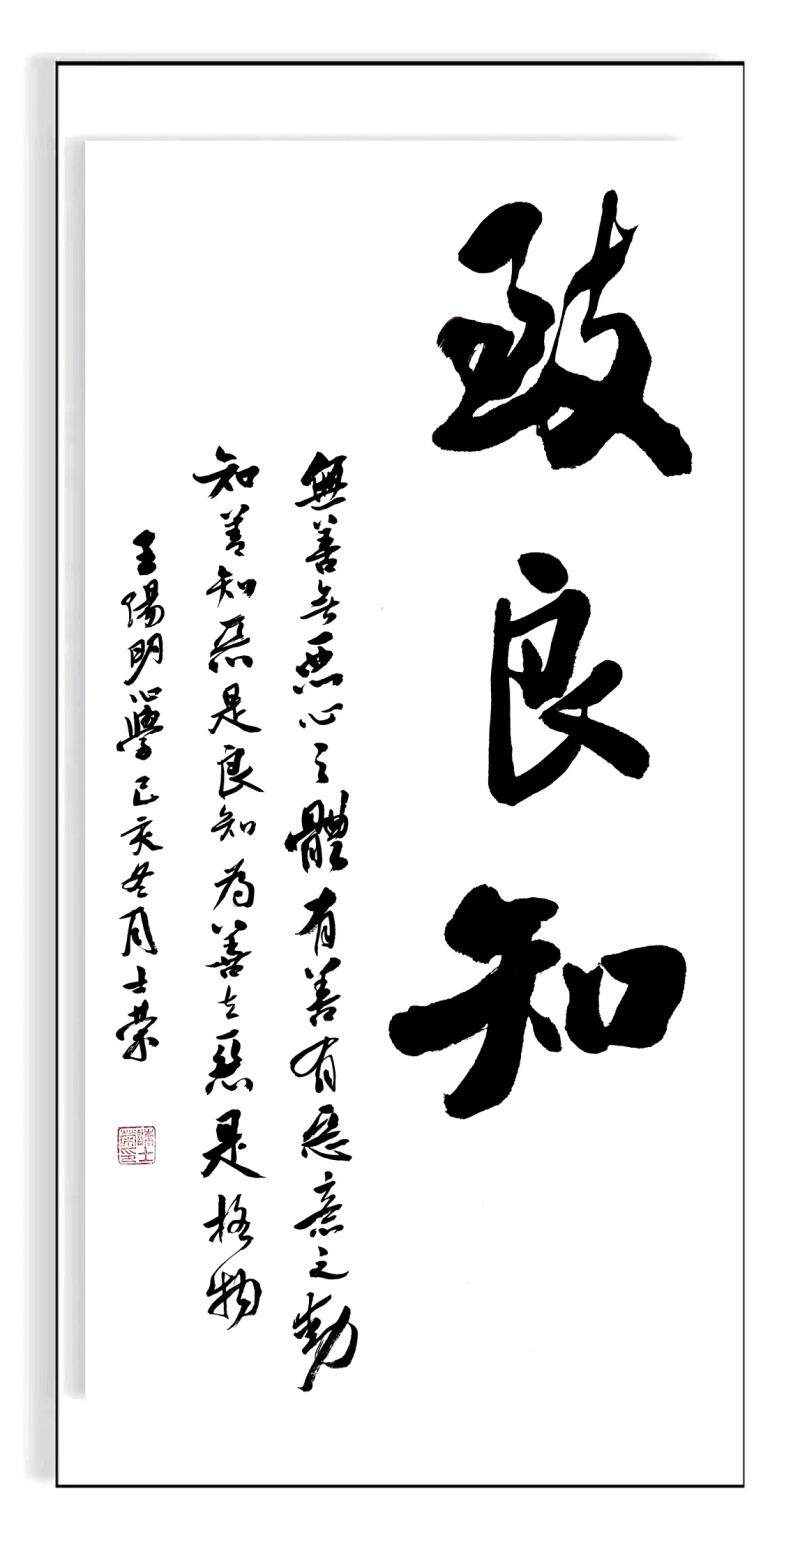 致良知
無善无惡心之體有善有惡意之動
知善知惡是良知為善去惡是格物
王陽明心學己亥冬月士榮